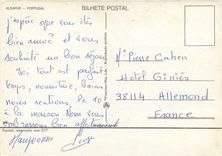 ALGARVE - PORTUGAL
BILHETE POSTAL
j'espère que vous êtes
bien arrivé et vous
souhaite un bon séjour
Ici tout est parfait
temps, nourriture, bains
nous rentrons le 10
à la maison Nous vous
embrassons bien affectueusement
Mr Pierre Cahen
Hotel Giniès
38114 Allemond
France